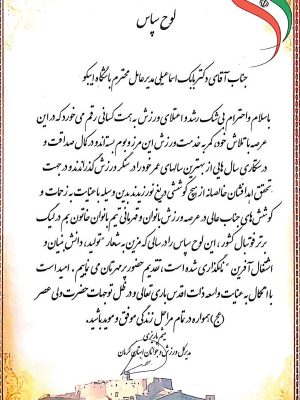 لوح سپاس
جناب آقای دکتر بابک اسماعیلی مدیرعامل محترم باشگاه ایبکو
باسلام و احترام بی شک رشد و اعتلای ورزش به همت کسانی رقم می خورد که در این
عرصه با تلاش خود، کمر به خدمت ورزش این مرز و بوم بسته اند و در کمال صداقت و
درستکاری سال هایی از بهترین سالهای عمر خود را در سنگر ورزش گذرانده اند و در جهت
تحقق اهداف شان خالصانه از هیچ کوششی دریغ نورزیدند بدین وسیله با عنایت به زحمات و
کوشش های جناب عالی در عرصه ورزش بانوان و قهرمانی تیم بانوان خاتون بم در لیگ
برتر فوتسال کشور، این لوح سپاس را در سالی که مزین به شعار "تولید، دانش بنیان و
اشتغال آفرین" نامگذاری شده است، تقدیم حضور پر مهرتان می نماییم. امید است
با اتکال به عنایت واسعه ذات اقدس باری تعالی و در ظل توجهات حضرت ولی عصر
(عج) همواره در تمام مراحل زندگی موفق و موید باشید.
میثم پاریزی
مدیرکل ورزش و جوانان استان کرمان